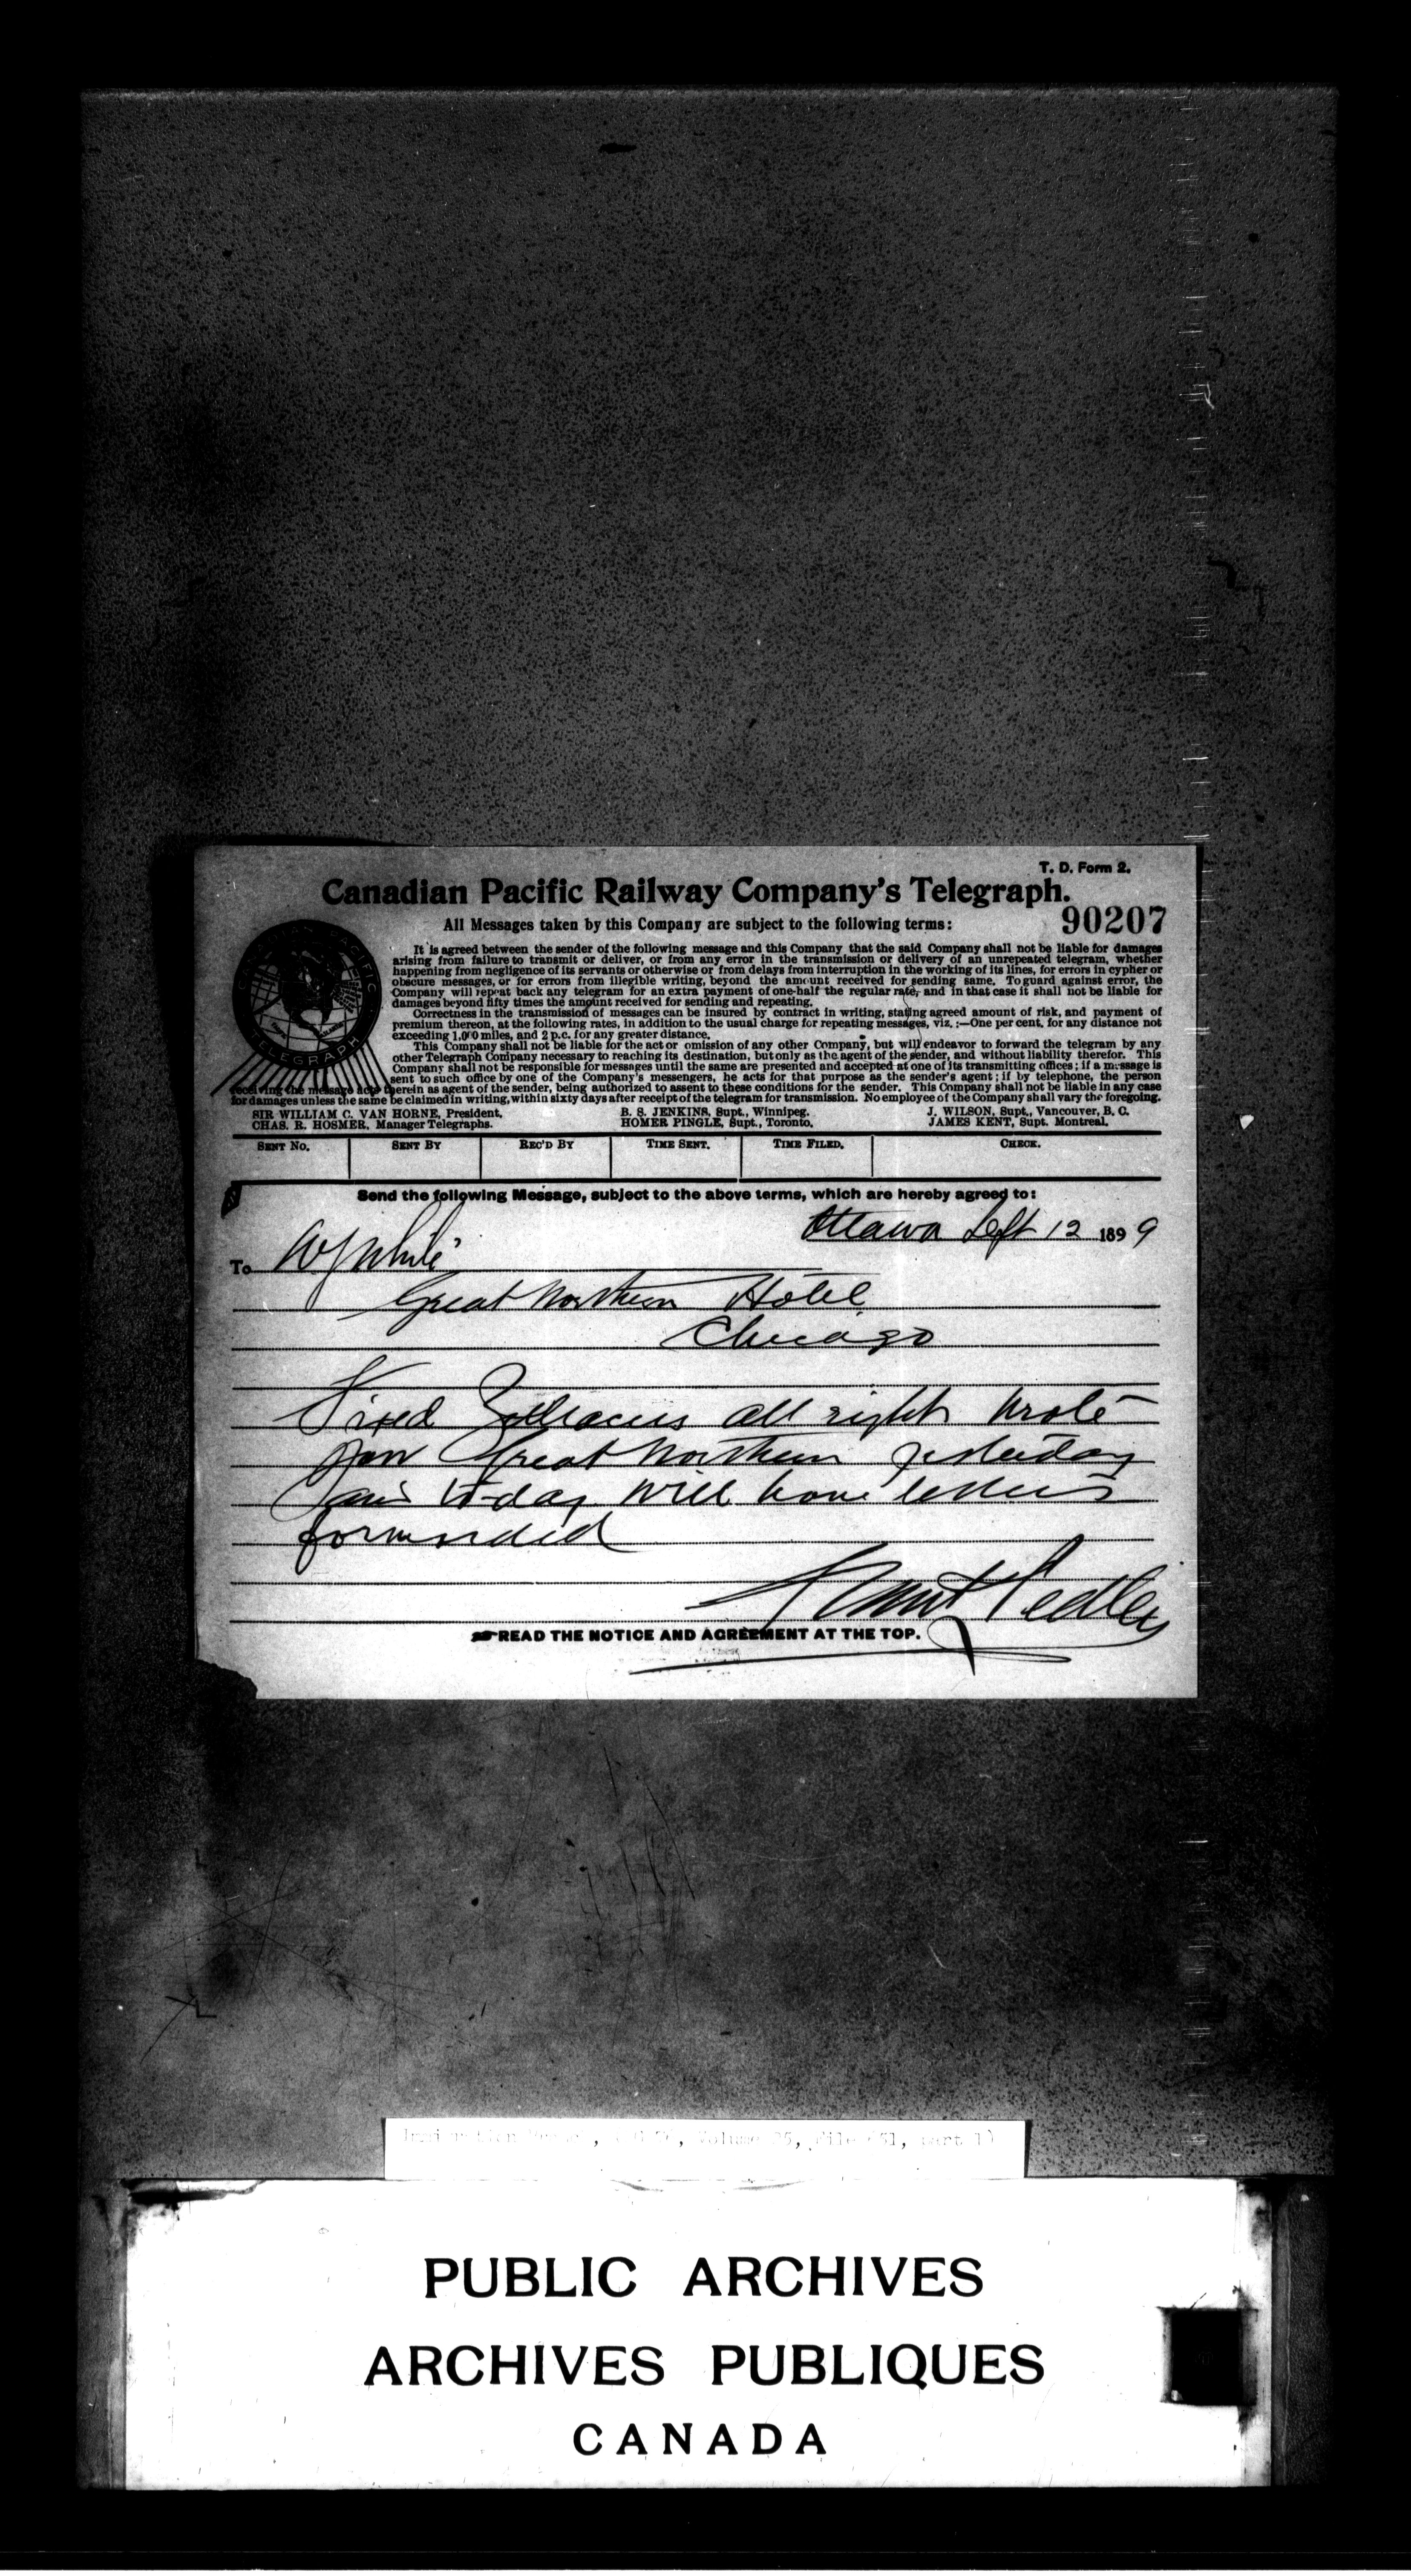 T. D. Form 2.
Canadian Pacific Railway Company's Telegraph.
90207
All Messages taken by this Company are subject to the following terms:
CANADIAN PACIFIC
TELEGRAPH
It is agreed between the sender of the following message and this Company that the said Company shall not be liable for damages
arising from failure to transmit or deliver, or from any error in the transmission or delivery of an unrepeated telegram, whether
happening from negligence of its servants or otherwise or from delays from interruption in the working of its lines, for errors in cypher or
obscure messages, or for errors from illegible writing, beyond the amount received for sending same. To guard against error, the
Company will repeat back any telegram for an extra payment of one-half the regular rate, and in that case it shall not be liable for
damages beyond fifty times the amount received for sending and repeating.
Correctness in the transmission of messages can be insured by contract in writing, stating agreed amount of risk, and payment of
premium thereon, at the following rates, in addition to the usual charge for repeating messages, viz.:—One per cent. for any distance not
exceeding 1,000 miles, and 2 p.c. for any greater distance.
This Company shall not be liable for the act or omission of any other Company, but will endeavor to forward the telegram by any
other Telegraph Company necessary to reaching its destination, but only as the agent of the sender, and without liability therefor. This
Company shall not be responsible for messages until the same are presented and accepted at one of its transmitting offices; if a message is
sent to such office by one of the Company's messengers, he acts for that purpose as the sender's agent; if by telephone, the person
receiving the message acts therein as agent of the sender, being authorized to assent to these conditions for the sender. This Company shall not be liable in any case
for damages unless the same be claimed in writing, within sixty days after receipt of the telegram for transmission. No employee of the Company shall vary the foregoing.
SIR WILLIAM C. VAN HORNE, President. B. S. JENKINS, Supt., Winnipeg. J. WILSON, Supt., Vancouver, B. C.
CHAS. R. HOSMER, Manager Telegraphs. HOMER PINGLE, Supt., Toronto. JAMES KENT, Supt. Montreal.
SENT NO. SENT BY REC'D BY TIME SENT. TIME FILED. CHECK.
Send the following Message, subject to the above terms, which are hereby agreed to:
Ottawa Sept 12 1899
To W J White
Great Northern Hotel
Chicago
Fixed all right wrote
you Great Northern yesterday
and to-day will have letters
forwarded
Pedley
READ THE NOTICE AND AGREEMENT AT THE TOP.
PUBLIC ARCHIVES
ARCHIVES PUBLIQUES
CANADA